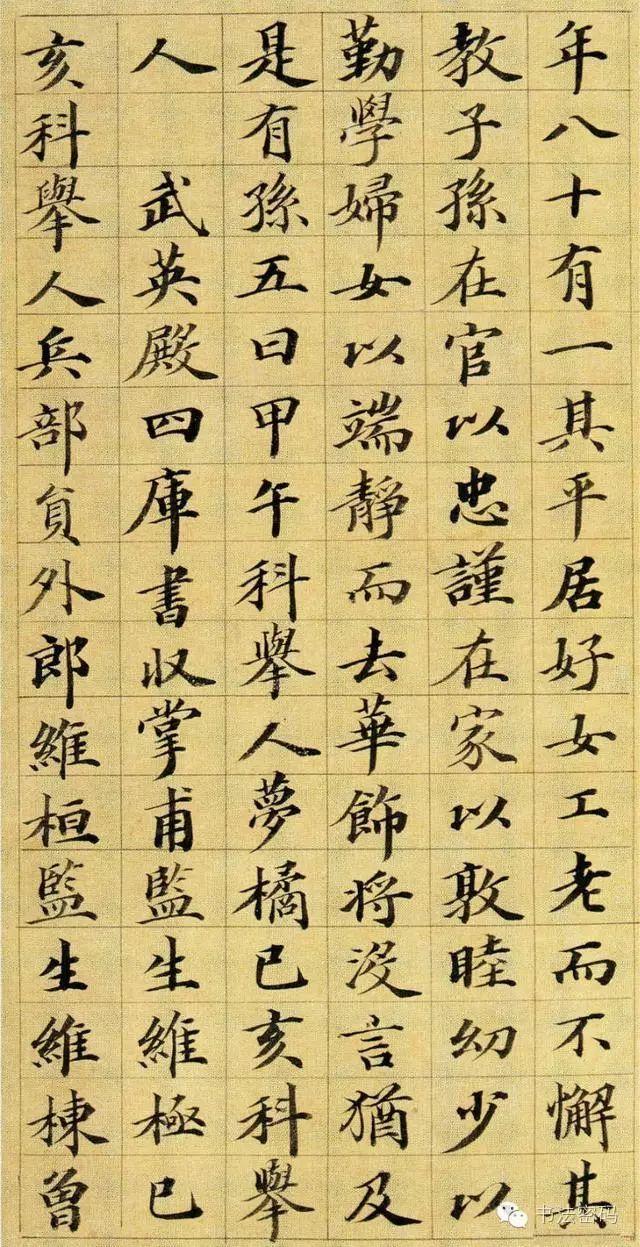 年八十有一其平居好女工老而不懈其
教子孫在官以忠謹在家以敦睦幼少以
勤學婦女以端靜而去華飾将没言猶及
是有孫五曰甲午科舉人夢橘已亥科舉
人武英殿四庫書収掌甫監生維極已
亥科舉人兵部負外郎維桓監生維棟曾
书法密码